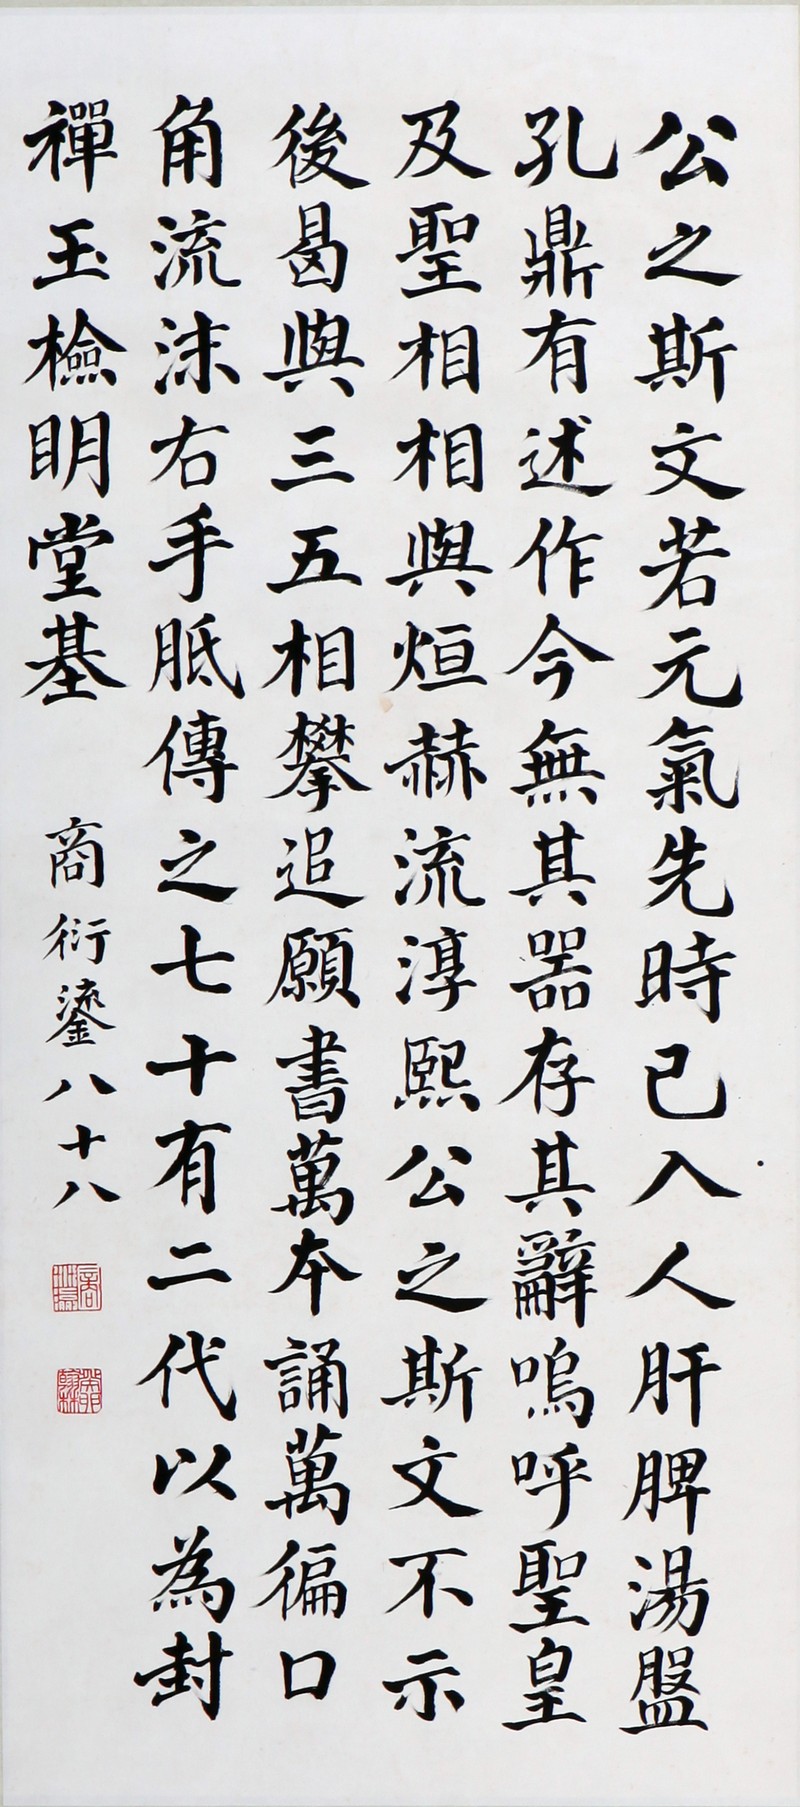 公之斯文若元氣先時已入人肝脾湯盤
孔鼎有述作今無其器存其辭嗚呼聖皇
及聖相相與烜赫流淳熙公之斯文不示
後曷與三五相攀追願書萬本誦萬徧口
角流沫右手胝傳之七十有二代以為封
禪玉檢明堂基
商衍鎏八十八